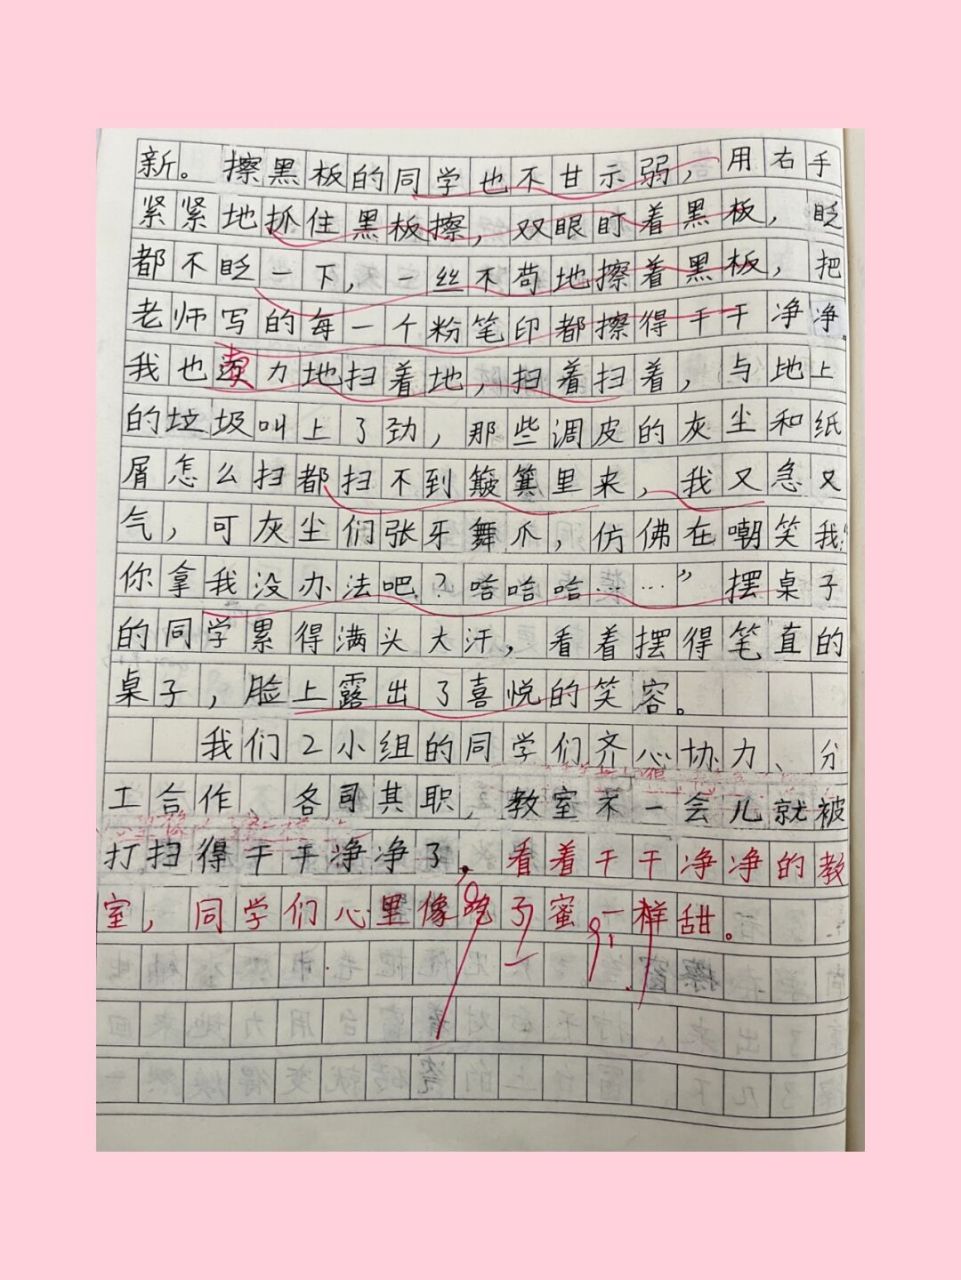 新。擦黑板的同学也不甘示弱，用右手
紧紧地抓住黑板擦，双眼盯着黑板，眨
都不眨一下，一丝不苟地擦着黑板，把
老师写的每一个粉笔印都擦得干干净净。
我也卖力地扫着地，扫着扫着，与地上
的垃圾叫上了劲，那些调皮的灰尘和纸
屑怎么扫都扫不到簸箕里来，我又急又
气，可灰尘们张牙舞爪，仿佛在嘲笑我：“
你拿我没办法吧？哈哈哈……”摆桌子
的同学累得满头大汗，看着摆得笔直的
桌子，脸上露出了喜悦的笑容。
我们2小组的同学们齐心协力、分
工合作 各司其职，教室不一会儿就被
打扫得干干净净了。看着干干净净的教
室，同学们心里像吃了蜜一样甜。